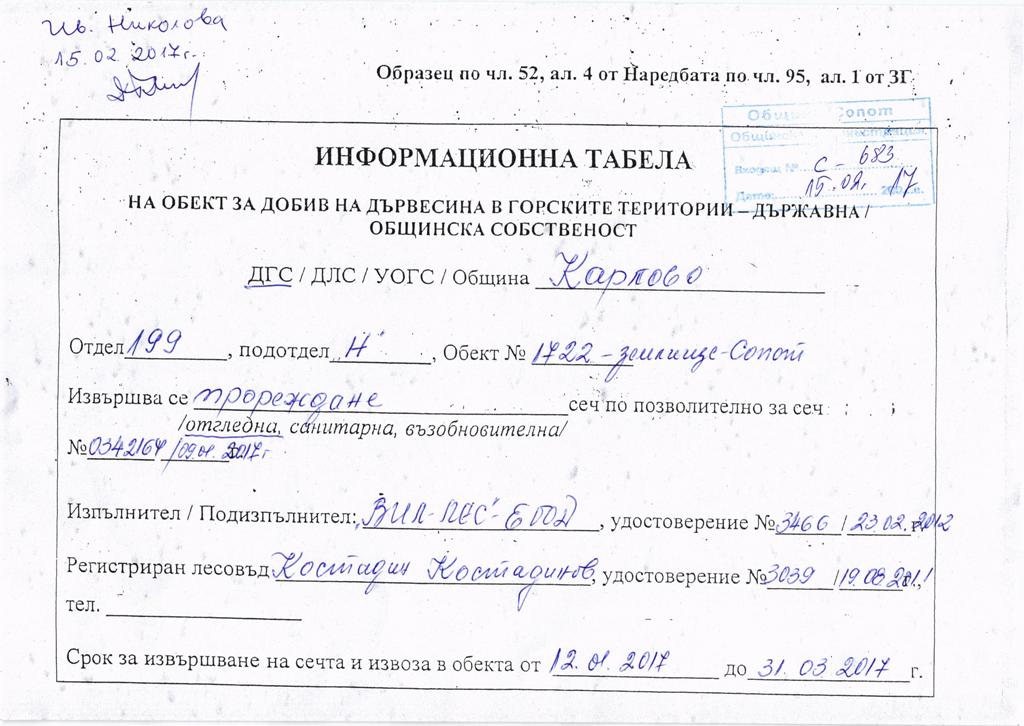 Ив. Николова
15.02.2017г.
Образец по чл. 52, ал. 4 от Наредбата по чл. 95, ал. 1 от ЗГ
Община Сопот
Входящ № С - 683
Дата: 15.02. 2017 г.
ИНФОРМАЦИОННА ТАБЕЛА
НА ОБЕКТ ЗА ДОБИВ НА ДЪРВЕСИНА В ГОРСКИТЕ ТЕРИТОРИИ – ДЪРЖАВНА /
ОБЩИНСКА СОБСТВЕНОСТ
ДГС / ДЛС / УОГС / Община Карлово
Отдел 199, подотдел "Н", Обект № 1722 - землище - Сопот
Извършва се прореждане сеч по позволително за сеч
/отгледна, санитарна, възобновителна/
№ 0342164 / 09.01.2017г
Изпълнител / Подизпълнител: "ВИЛ-ЛЕС"-ЕООД, удостоверение № 3466 / 23.02.2012
Регистриран лесовъд Костадин Костадинов, удостоверение № 3039 / 19.08.2011,
тел.
Срок за извършване на сечта и извоза в обекта от 12.01.2017 до 31.03.2017 г.